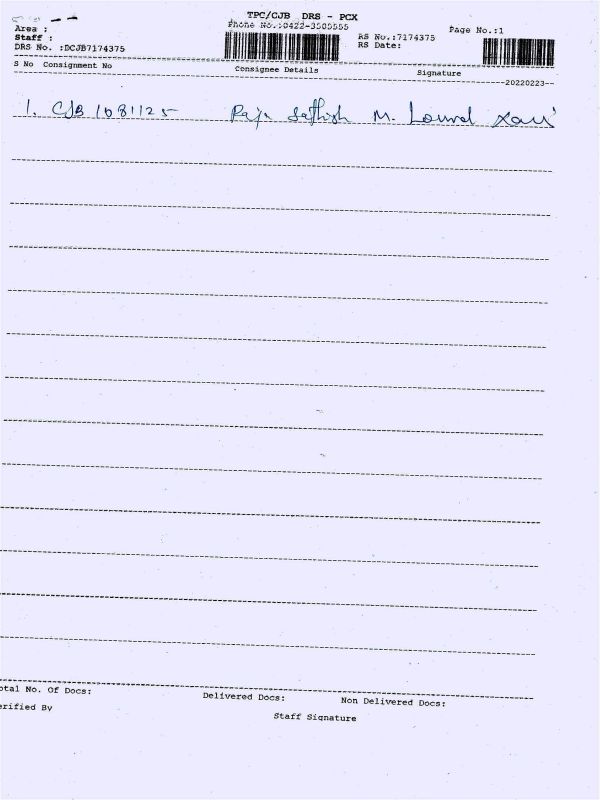 TPC/CJB DRS - PCX
Phone No.:0422-3505555
Page No.:1
Area :
Staff :
RS No.:7174375
DRS No. :DCJB7174375
RS Date:
S No Consignment No Consignee Details Signature
20220223
1. CJB 1081125 Raja Sathish M.
Total No. Of Docs: Delivered Docs: Non Delivered Docs:
Verified By
Staff Signature